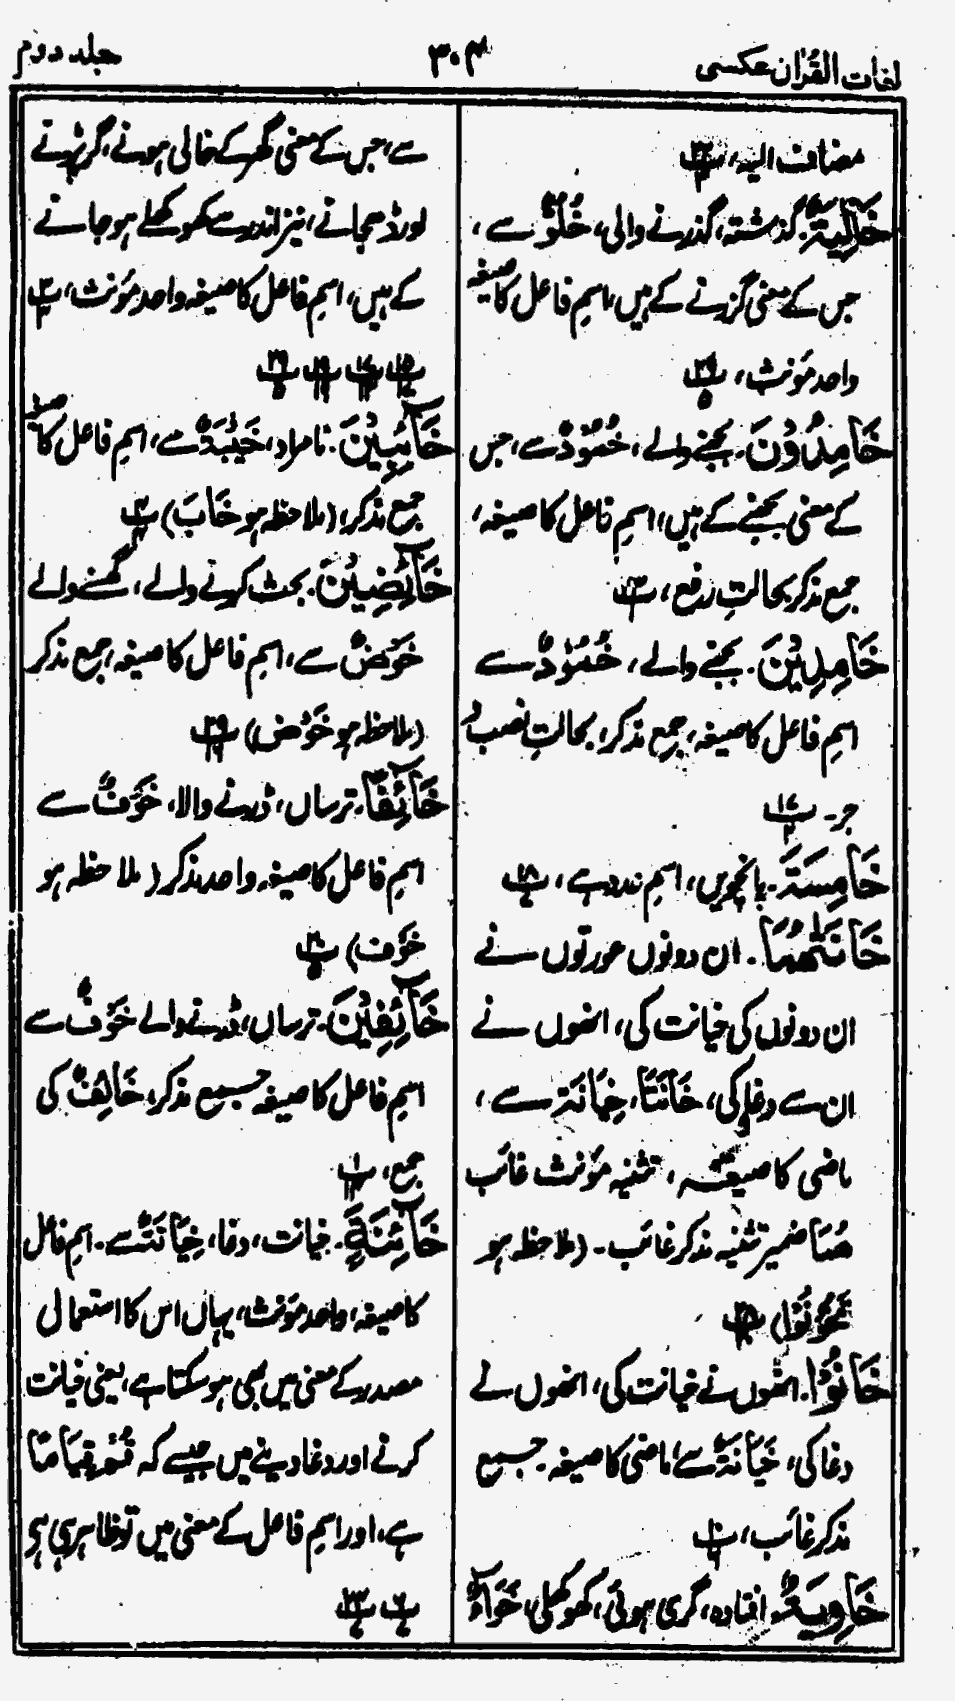 لغات القُرْان عکسی
۳۰۴
جلد دوم
مضاف الیہ،
خَالِیَۃٌ. گذشتہ، گذرنے والی، خُلُوٌّ سے،
جس کے معنی گزرنے کے ہیں، اسمِ فاعل کا صیغہ
واحد مؤنث، پ۲۹
خَامِدُوْنَ. بجھنے والے، خُمُوْدٌ سے، جس
کے معنی بجھنے کے ہیں، اسمِ فاعل کا صیغہ،
جمع مذکر بحالتِ رفع،
خَامِدِیْنَ. بجھنے والے، خُمُوْدٌ سے
اسمِ فاعل کا صیغہ، جمع مذکر، بحالتِ نصب و
جر۔ پ۱۷
خَامِسَۃَ. پانچویں، اسمِ عدد ہے، پ۱۸
خَانَتٰھُمَا. ان دونوں عورتوں نے
ان دونوں کی خیانت کی، انھوں نے
ان سے دغا کی، خَانَتَا، خِیَانَۃٌ سے،
ماضی کا صیغہ، تثنیہ مؤنث غائب
ھُمَا ضمیر تثنیہ مذکر غائب۔ (ملاحظہ ہو
تَخُوْنُوْا) پ۲۸
خَانُوْا. انھوں نے خیانت کی، انھوں نے
دغا کی، خِیَانَۃٌ سے، ماضی کا صیغہ جمع
مذکر غائب، پ۱۰
خَاوِیَۃٌ. افتادہ، گری ہوئی، کھوکھلی، خَوَآءٌ
سے، جس کے معنی گھر کے خالی ہونے، گر پڑنے
اور ڈھجانے، نیز اندر سے کھوکھلے ہو جانے
کے ہیں، اسمِ فاعل کا صیغہ واحد مؤنث، پ۳
پ۱۵ پ۱۷ پ۱۹ پ۲۹
خَآئِبِیْنَ. نامراد، خَیْبَۃٌ سے، اسمِ فاعل کا صیغہ
جمع مذکر، (ملاحظہ ہو خَابَ) پ۴
خَآئِضِیْنَ. بحث کرنے والے، گھسنے والے
خَوْضٌ سے، اسمِ فاعل کا صیغہ، جمع مذکر
(ملاحظہ ہو خَوْض) پ۲۹
خَآئِفًا. ترساں، ڈرنے والا، خَوْفٌ سے
اسمِ فاعل کا صیغہ واحد مذکر (ملاحظہ ہو
خَوْف) پ۲۰
خَآئِفِیْنَ. ترساں، ڈرنے والے خَوْفٌ سے
اسمِ فاعل کا صیغہ جمع مذکر، خَائِفٌ کی
جمع، پ۱
خَآئِنَۃٍ. خیانت، دغا، خِیَانَۃٌ سے. اسمِ فاعل
کا صیغہ، واحد مؤنث، یہاں اس کا استعمال
مصدر کے معنی میں بھی ہو سکتا ہے، یعنی خیانت
کرنے اور دغا دینے میں جیسے کہ قُمْ قِیَامًا
ہے، اور اسمِ فاعل کے معنی میں تو ظاہر ہی ہی
پ۶ پ۲۴